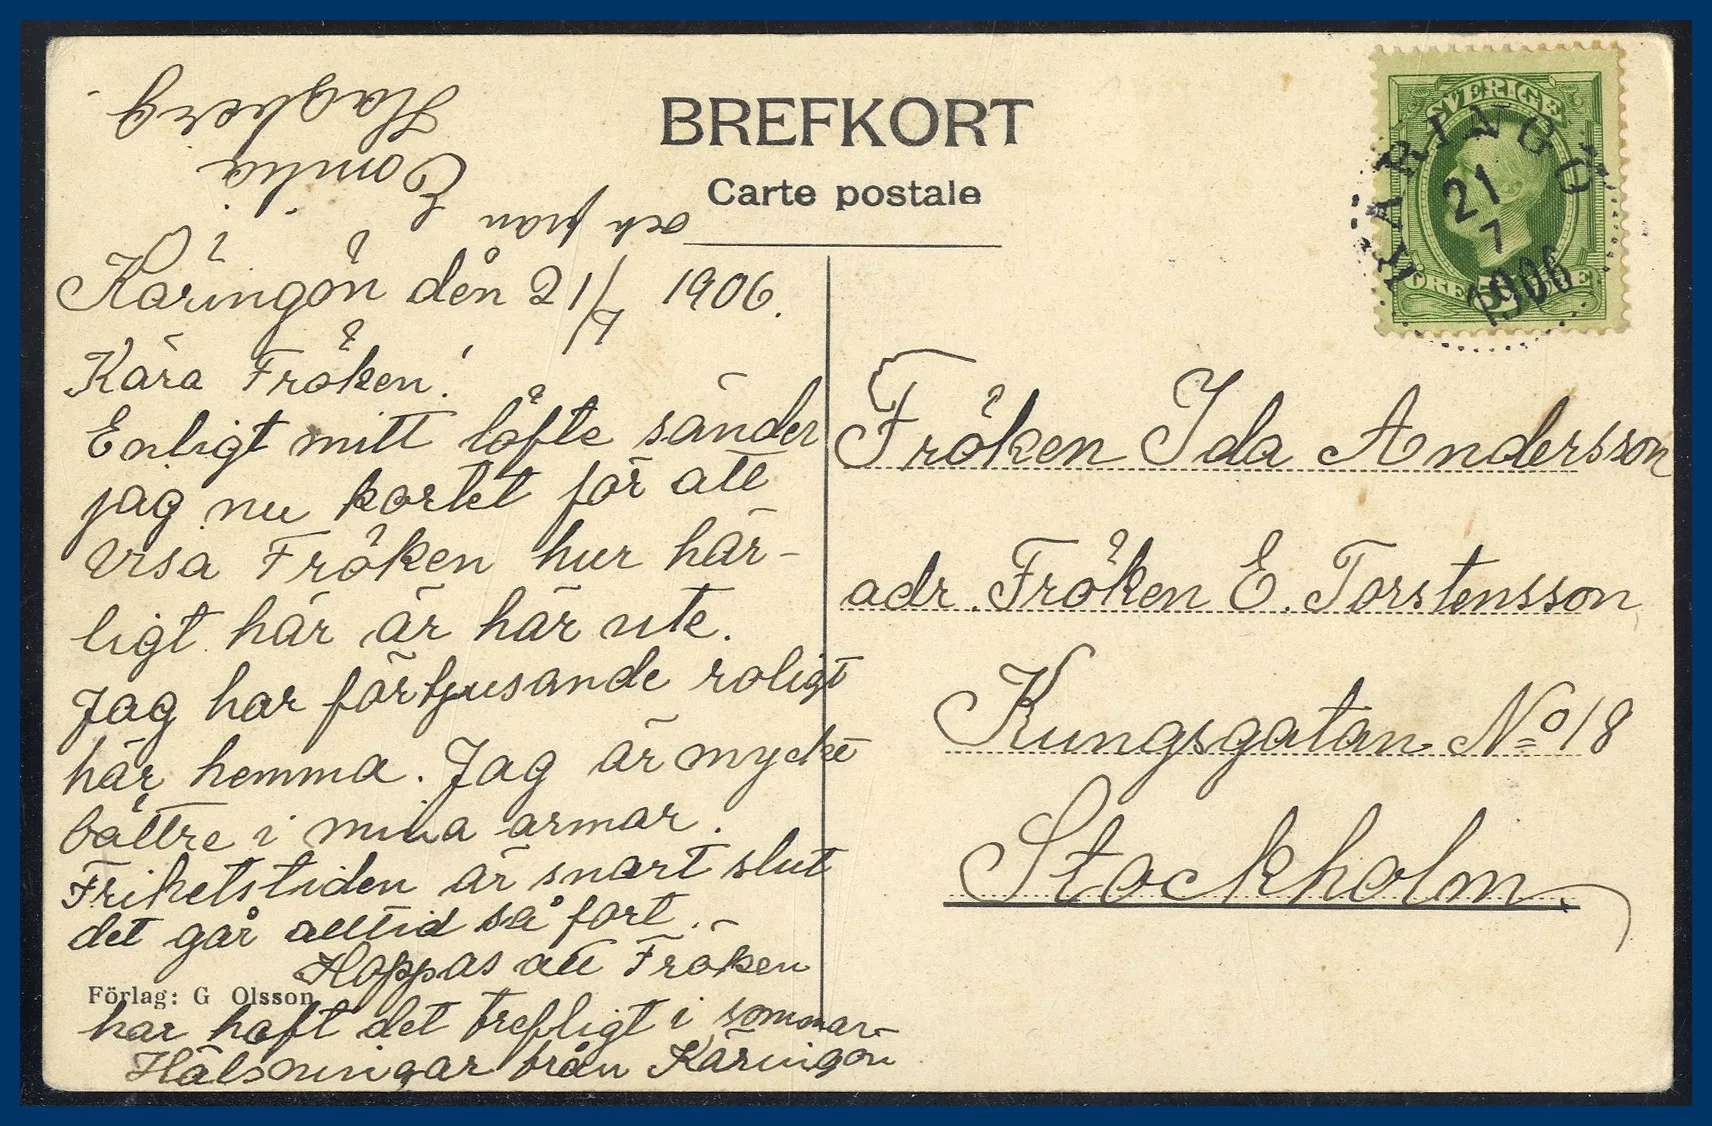 BREFKORT
Carte postale
SVERIGE
KÄRINGÖN
21
7
1906
Käringön den 21/7 1906.
Kära Fröken!
Enligt mitt löfte sänder
jag nu kortet för att
visa Fröken hur här-
ligt här är här ute.
Jag har förtjusande roligt
här hemma. Jag är mycke
bättre i mina armar.
Frihetstiden är snart slut
det går alltid så fort. –
Hoppas att Fröken
har haft det trefligt i sommar–
Hälsningar från Käringön
och från
Emilia
Hagberg.
Förlag: G Olsson
Fröken Ida Andersson
adr. Fröken E. Torstensson
Kungsgatan No 18
Stockholm